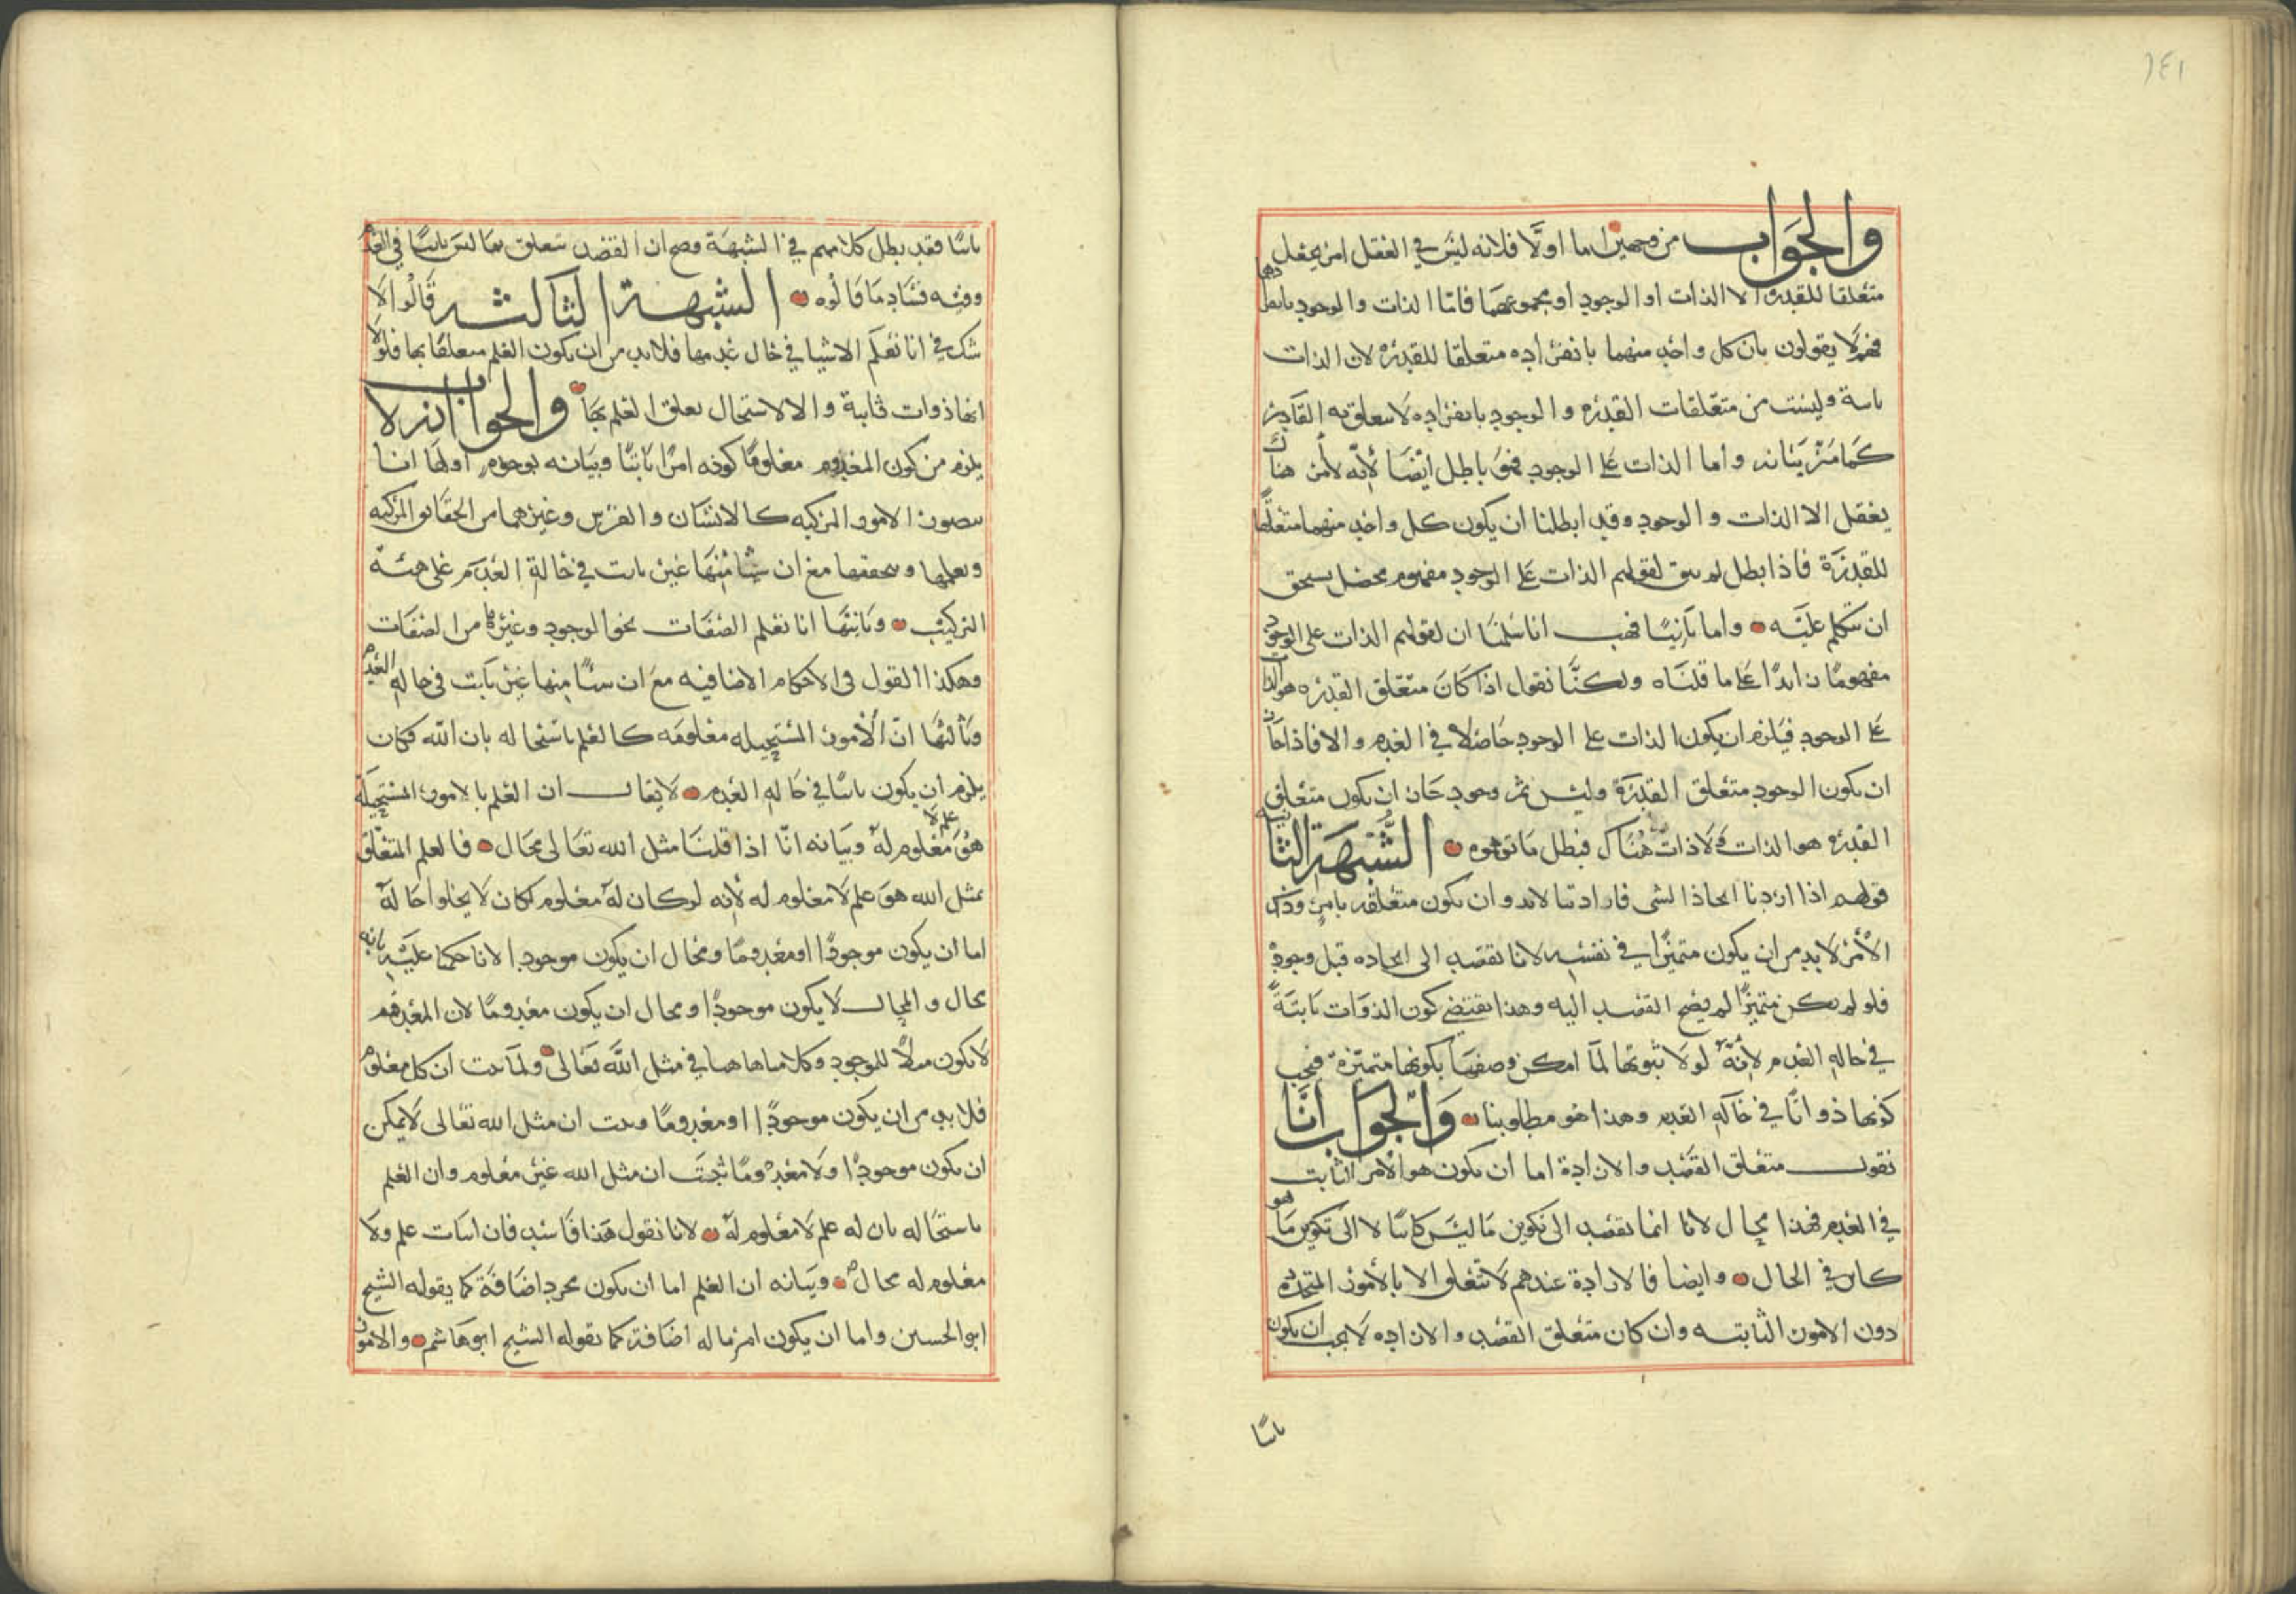 ١٤١
والجواب من وجهين اما اولًا فلانه ليس في العقل امر يعقل
متعلقا للقدرة الا الذات او الوجود او مجموعهما فاما الذات والوجود بانفرادهما
فهم لا يقولون بان كل واحد منهما بانفراده متعلقا للقدرة لان الذات
ثابتة وليست من متعلقات القدرة والوجود بانفراده لا يتعلق به القادر
كما مر بيانه واما الذات على الوجود فهو باطل ايضا لأنه لا من هناك
يعقل الا الذات والوجود وقد ابطلنا ان يكون كل واحد منهما متعلقًا
للقدرة فاذا بطل لم يبق لقولهم الذات على الوجود مفهوم محصل يستحق
ان نتكلم عليه واما ثانيًا فهب انا سلمنا ان لقولهم الذات على الوجود
مفهومًا زايدًا على ما قلناه ولكنَّا نقول اذا كان متعلق القدرة هو الذات
على الوجود فيلزم ان يكون الذات على الوجود حاصلا في العدم والا فاذا جاز
ان يكون الوجود متعلق القدرة وليس ثم وجود جاز ان يكون متعلق
القدرة هو الذات ولا ذات هناك فبطل ما توهموه الشُّبهة الثانية
قولهم اذا اردنا ايجاد الشي فارادتنا لابد وان تكون متعلقة بامرٍ وذلك
الأمر لا بد من ان يكون متميزًا في نفسه لانا نقصد الى ايجاده قبل وجوده
فلو لم يكن متميزًا لم يصح القصد اليه وهذا يقتضي كون الذوات ثابتةً
في حالة العدم لأنَّه لولا ثبوتها لما امكن وصفها بكونها متميزة فيجب
كونها ذواتًا في حالة العدم وهذا هو مطلوبنا والجواب أنَّا
نقول متعلق القصد والارادة اما ان يكون هو الامر الثابت
في العدم فهذا محال لانا انما نقصد الى تكوين ما ليس كائنًا لا الى تكوين ما هو
كائن في الحال وايضا فالارادة عندهم لا تتعلق الا بالأمور المتجددة
دون الامور الثابته وان كان متعلق القصد والارادة لا يجب ان يكون
ثابتًا
ثابتًا فقد بطل كلامهم في الشبهة وصح ان القصد يتعلق بما ليس ثابتًا في العدم
وفيه فساد ما قالوه الشبهة الثالثة قالوا لا
شك في انا نعلم الاشيا في حال عدمها فلابد من ان يكون العلم متعلقًا بها فلولا
انها ذوات ثابتة والا لاستحال تعلق العلم بها والجواب انه لا
يلزم من كون المعدوم معلومًا كونه امرًا ثابتًا وبيانه بوجوه اولها انا
نتصور الامور المركبه كالانسان والفرس وغيرهما من الحقائق المركبه
ونعلمها ونحققها مع ان شيئا منها غير ثابت في حالة العدم على هيئة
التركيب وثانيها انا نعلم الصفات نحو الوجود وغيره من الصفات
وهكذا القول في الاحكام الاضافيه مع ان شيئًا منها غير ثابت في حالة العدم
وثالثها انّ الأمور المستحيله معلومه كالعلم باستحاله ثان الله فكان
يلزم ان يكون ثابتًا في حالة العدم لا يقال ان العلم بالامور المستحيلة
علم لا
هُوَ معلوم لهُ وبيانه انّا اذا قلنا مثل الله تعالى محال فالعلم المتعلق
بمثل الله هو علم لا معلوم له لأنه لو كان له معلوم لكان لا يخلوا حالهُ
اما ان يكون موجودًا او معدومًا ومحال ان يكون موجودا لانا حكمنا عليه بانه
محال والمحال لا يكون موجودًا ومحال ان يكون معدومًا لان المعدوم
لا يكون مثلًا للموجود وكلامنا هاهنا في مثل الله تعالى ولما ثبت ان كل معلوم
فلا بد من ان يكون موجودًا او معدومًا وثبت ان مثل الله تعالى لا يمكن
ان يكون موجودًا ولا معدومًا ثبت ان مثل الله غير معلوم وان العلم
باستحاله ثان له علم لا معلوم لهُ لانا نقول هذا فاسد فان اثبات علم ولا
معلوم له محال وبيانه ان العلم اما ان يكون مجرد اضافة كما يقوله الشيخ
ابو الحسين واما ان يكون امرًا له اضافة كما يقوله الشيخ ابو هاشم والامور